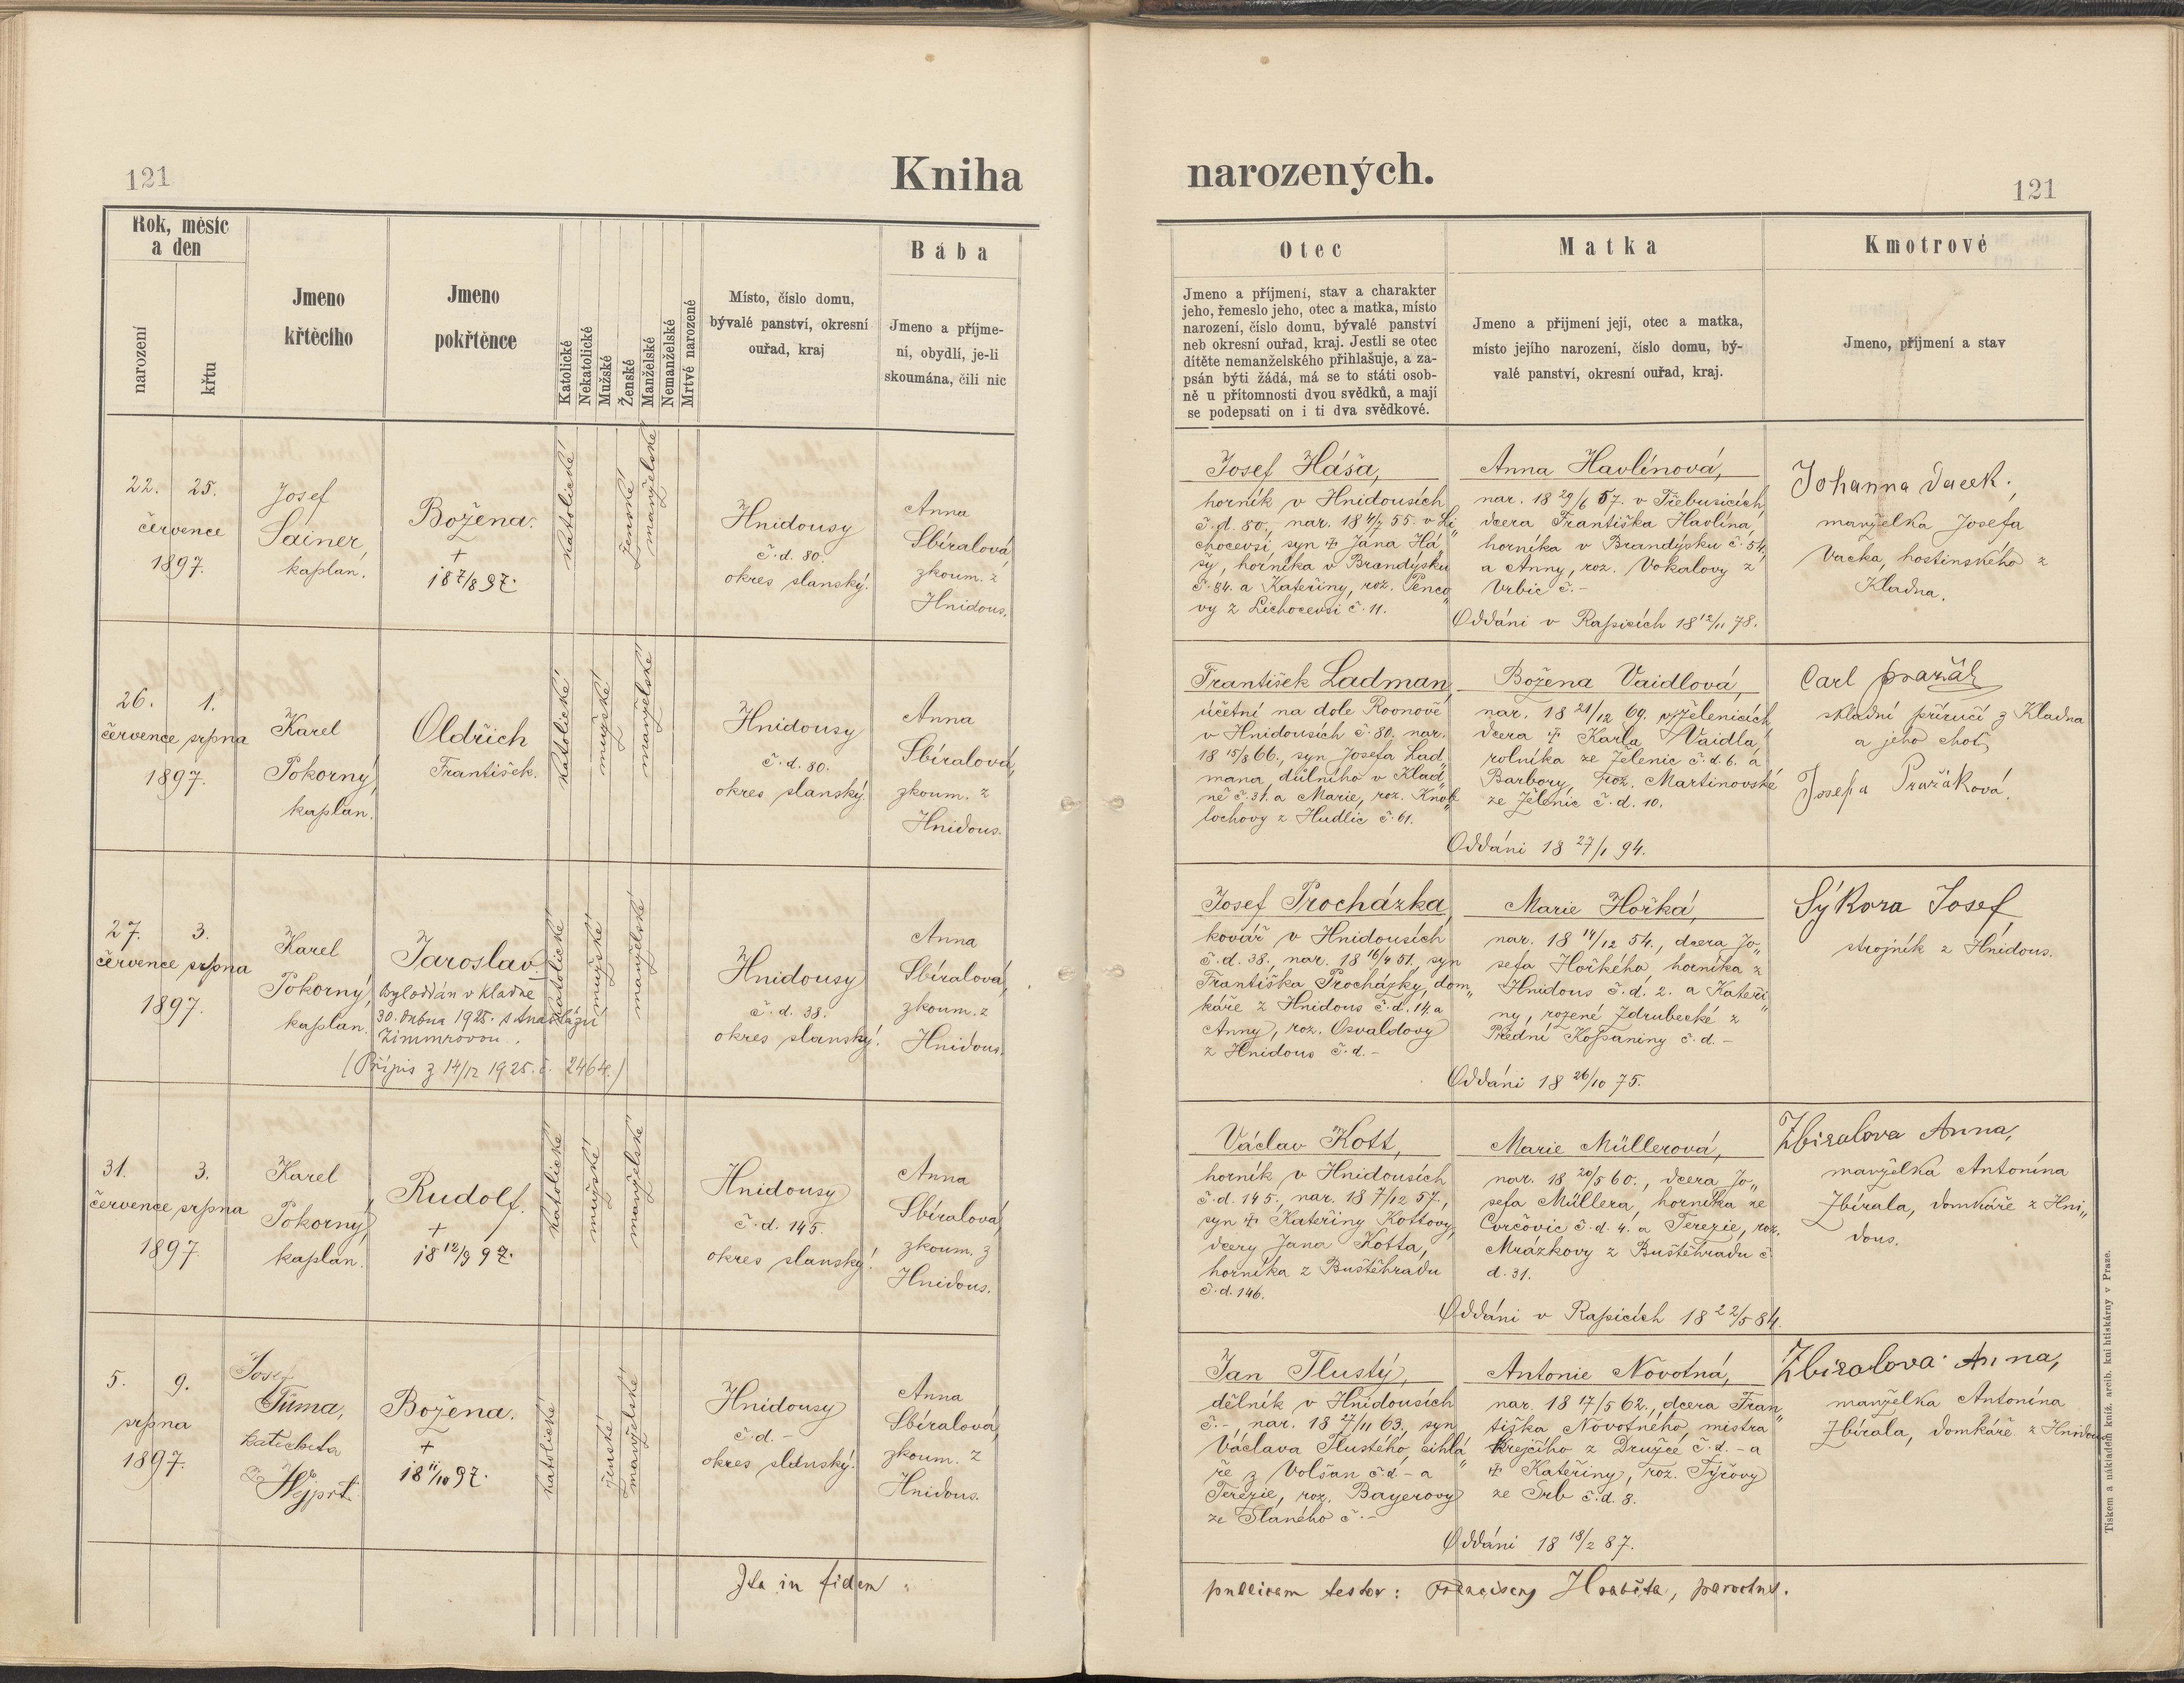 121
Kniha
narozených.
121
Rok, měsíc
a den
narození
křtu
Jmeno
křtěcího
Jmeno
pokřtěnce
Katolické
Nekatolické
Mužské
Ženské
Manželské
Nemanželské
Mrtvě narozené
Místo, číslo domu,
bývalé panství, okresní
ouřad, kraj
Bába
Jmeno a příjme-
ní, obydlí, je-li
skoumána, čili nic
Otec
Jmeno a příjmení, stav a charakter
jeho, řemeslo jeho, otec a matka, místo
narození, číslo domu, bývalé panství
neb okresní ouřad, kraj. Jestli se otec
dítěte nemanželského přihlašuje, a za-
psán býti žádá, má se to státi osob-
ně u přítomnosti dvou svědků, a mají
se podepsati on i ti dva svědkové.
Matka
Jmeno a přijmení její, otec a matka,
místo jejího narození, číslo domu, bý-
valé panství, okresní ouřad, kraj.
Kmotrové
Jmeno, příjmení a stav
22. 25.
července
1897.
Josef
Šainer,
kaplan.
Božena.
+
18 7/8 97.
katolické
ženské
manželské
Hnidousy
č.d. 80.
okres slanský.
Anna
Sbíralová,
zkoum. z
Hnidous.
Josef Háša,
horník v Hnidousích
č.d. 80., nar. 18 4/7 55. v Li„
chocevsi, syn † Jana Há„
šy, horníka v Brandýsku
č. 84. a Kateřiny, roz. Penco„
vy z Lichocevsi č. 11.
Anna Havlínová,
nar. 18 29/6 57. v Třebusicích,
dcera Františka Havlína,
horníka v Brandýsku č. 54.
a Anny, roz. Vokalovy z
Vrbic č. -
Oddáni v Rapicích 18 12/11 78.
Johanna Vacek.,
manželka Josefa
Vacka, hostinského z
Kladna.
26. 1.
července srpna
1897.
Karel
Pokorný,
kaplan.
Oldřich
František.
katolické
mužské
manželské
Hnidousy
č.d. 80.
okres slanský.
Anna
Sbíralová,
zkoum. z
Hnidous.
František Ladman,
účetní na dole Roonově
v Hnidousích č. 80. nar.
18 15/8 66., syn Josefa Lad„
mana, důlního v Klad„
ně č. 31. a Marie, roz. Knob„
lochovy z Hudlic č. 61.
Božena Vaidlová,
nar. 18 21/12 69. v Želenicích,
dcera † Karla Vaidla,
rolníka ze Želenic č.d. 6. a
Barbory, roz. Martinovské
ze Želenic č.d. 10.
Oddáni 18 27/1 94.
Carl Pražák
skladní příručí z Kladna
a jeho choť,
Josefa Pražáková.
27. 3.
července srpna
1897.
Karel
Pokorný,
kaplan.
Jaroslav.
Byl oddán v Kladně
30. dubna 1925. s Anastázií
Zimmrovou.
(Přípis z 14/12 1925. č. 2464.)
katolické
mužské
manželské
Hnidousy
č.d. 38.
okres slanský.
Anna
Sbíralová,
zkoum. z
Hnidous.
Josef Procházka,
kovář v Hnidousích
č.d. 38., nar. 18 16/4 51., syn
Františka Procházky, dom„
káře z Hnidous č.d. 14. a
Anny, roz. Osvaldovy
z Hnidous č.d. -
Marie Hořká,
nar. 18 14/12 54., dcera Jo„
sefa Hořkého, horníka z
Hnidous č.d. 2. a Kateři„
ny, rozené Zdrubecké z
Přední Kopaniny č.d. -
Oddáni 18 26/10 75.
Sýkora Josef,
strojník z Hnidous.
31. 3.
července srpna
1897.
Karel
Pokorný,
kaplan.
Rudolf.
+
18 12/9 97.
katolické
mužské
manželské
Hnidousy
č.d. 145.
okres slanský.
Anna
Sbíralová,
zkoum. z
Hnidous.
Václav Kott,
horník v Hnidousích
č.d. 145., nar. 18 7/12 57.,
syn † Kateřiny Kottovy,
dcery Jana Kotta,
horníka z Buštěhradu
č.d. 146.
Marie Müllerová,
nar. 18 20/5 60., dcera Jo„
sefa Müllera, horníka ze
Cvrčovic č.d. 4. a Terezie, roz.
Mrázkovy z Buštěhradu č.
d. 31.
Oddáni v Rapicích 18 22/5 84.
Zbiralova Anna,
manželka Antonína
Zbírala, domkáře z Hni„
dous.
5. 9.
srpna
1897.
Josef
Tůma,
katecheta
Ze
Wejprt.
Božena.
+
18 11/10 97.
katolické
ženské
manželské
Hnidousy
č.d. -
okres slanský.
Anna
Sbíralová,
zkoum. z
Hnidous.
Jan Tlustý,
dělník v Hnidousích
č. -, nar. 18 27/11 63., syn
Václava Tlustého, cihlá„
ře z Volšan č.d. - a
Terezie, roz. Bayerovy
ze Slaného č. -
Antonie Novotná,
nar. 18 17/5 62., dcera Fran„
tiška Novotného, mistra
krejčího z Družce č.d. - a
† Kateřiny, roz. Týřovy
ze Srb č.d. 8.
Oddáni 18 18/2 87.
Zbiralova Anna,
manželka Antonína
Zbírala, domkáře z Hnidous
Ita in fidem
publicam testor: Franciscus Hraběta, parochus.
Tiskem a nákladem kníž. arcib. knihtiskárny v Praze.